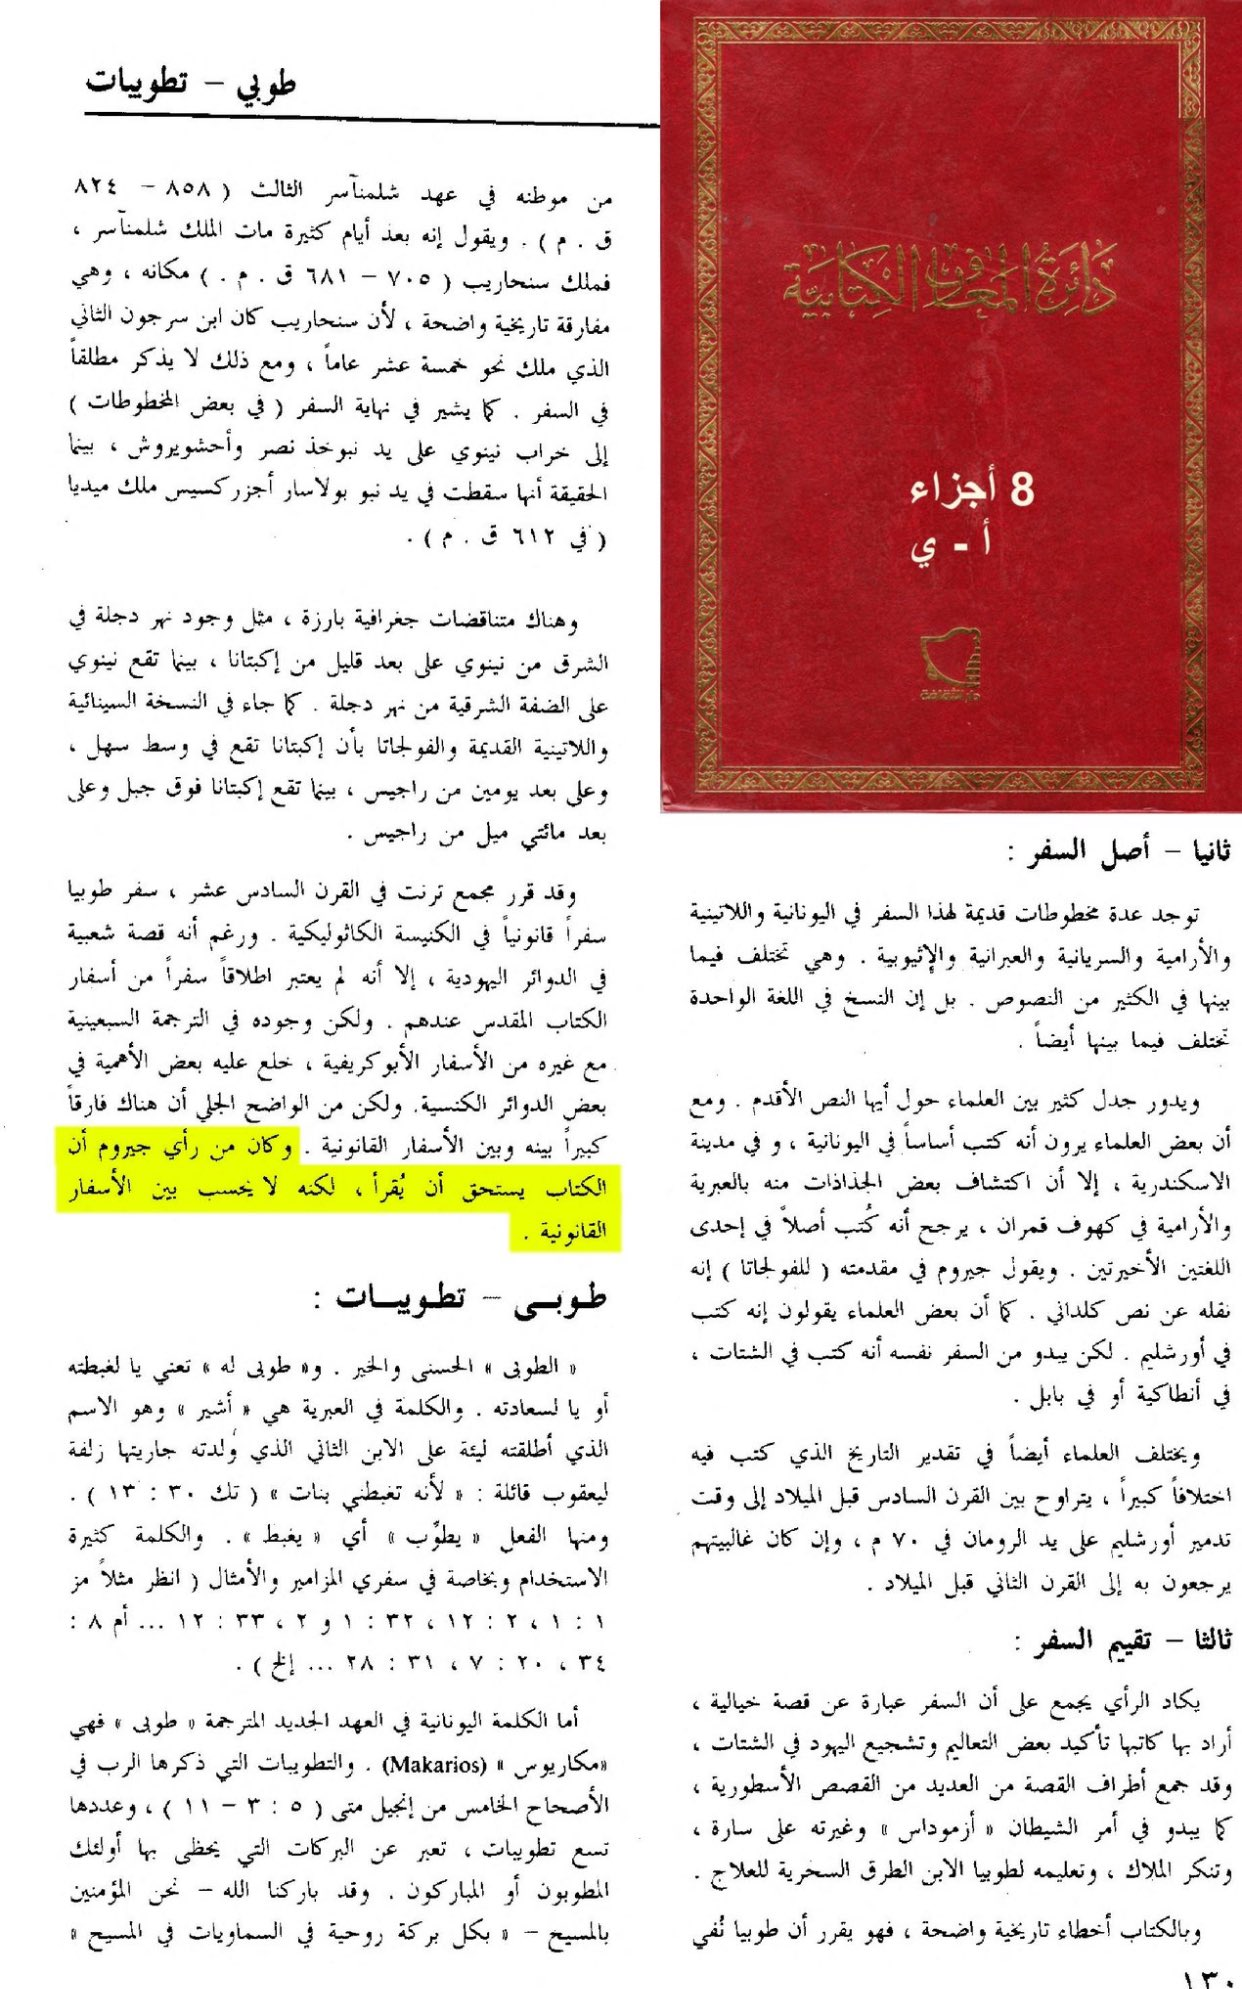 دَائِرَةُ المَعَارِف الكِتَابِيَّة
8 أجزاء
أ - ي
دار الثقافة
ثانيا – أصل السفر :
توجد عدة مخطوطات قديمة لهذا السفر في اليونانية واللاتينية
والأرامية والسريانية والعبرانية والإثيوبية . وهي تختلف فيما
بينها في الكثير من النصوص . بل إن النسخ في اللغة الواحدة
تختلف فيما بينها أيضاً .
ويدور جدل كثير بين العلماء حول أيها النص الأقدم . ومع
أن بعض العلماء يرون أنه كتب أساساً في اليونانية ، و في مدينة
الاسكندرية ، إلا أن اكتشاف بعض الجذاذات منه بالعبرية
والأرامية في كهوف قمران ، يرجح أنه كُتب أصلاً في إحدى
اللغتين الأخيرتين . ويقول جيروم في مقدمته ( للفولجاتا ) إنه
نقله عن نص كلداني . كما أن بعض العلماء يقولون إنه كتب
في أورشليم . لكن يبدو من السفر نفسه أنه كتب في الشتات ،
في أنطاكية أو في بابل .
ويختلف العلماء أيضاً في تقدير التاريخ الذي كتب فيه
اختلافاً كبيراً ، يتراوح بين القرن السادس قبل الميلاد إلى وقت
تدمير أورشليم على يد الرومان في ٧٠ م ، وإن كان غالبيتهم
يرجعون به إلى القرن الثاني قبل الميلاد .
ثالثا – تقييم السفر :
يكاد الرأي يجمع على أن السفر عبارة عن قصة خيالية ،
أراد بها كاتبها تأكيد بعض التعاليم وتشجيع اليهود في الشتات ،
وقد جمع أطراف القصة من العديد من القصص الأسطورية ،
كما يبدو في أمر الشيطان « أزموداس » وغيرته على سارة ،
وتنكر الملاك ، وتعليمه لطوبيا الابن الطرق السحرية للعلاج .
وبالكتاب أخطاء تاريخية واضحة ، فهو يقرر أن طوبيا نُفي
١٣٠
طوبي – تطويبات
من موطنه في عهد شلمنآسر الثالث ( ٨٥٨ – ٨٢٤
ق . م ) . ويقول إنه بعد أيام كثيرة مات الملك شلمنآسر ،
فملك سنحاريب ( ٧٠٥ – ٦٨١ ق . م . ) مكانه ، وهي
مفارقة تاريخية واضحة ، لأن سنحاريب كان ابن سرجون الثاني
الذي ملك نحو خمسة عشر عاماً ، ومع ذلك لا يذكر مطلقاً
في السفر . كما يشير في نهاية السفر ( في بعض المخطوطات )
إلى خراب نينوي على يد نبوخذ نصر وأحشويروش ، بينما
الحقيقة أنها سقطت في يد نبو بولاسار أجزركسيس ملك ميديا
( في ٦١٢ ق . م ) .
وهناك متناقضات جغرافية بارزة ، مثل وجود نهر دجلة في
الشرق من نينوي على بعد قليل من إكبتانا ، بينما تقع نينوي
على الضفة الشرقية من نهر دجلة . كما جاء في النسخة السينائية
واللاتينية القديمة والفولجاتا بأن إكبتانا تقع في وسط سهل ،
وعلى بعد يومين من راجيس ، بينما تقع إكبتانا فوق جبل وعلى
بعد مائتي ميل من راجيس .
وقد قرر مجمع ترنت في القرن السادس عشر ، سفر طوبيا
سفراً قانونياً في الكنيسة الكاثوليكية . ورغم أنه قصة شعبية
في الدوائر اليهودية ، إلا أنه لم يعتبر اطلاقاً سفراً من أسفار
الكتاب المقدس عندهم . ولكن وجوده في الترجمة السبعينية
مع غيره من الأسفار الأبوكريفية ، خلع عليه بعض الأهمية في
بعض الدوائر الكنسية. ولكن من الواضح الجلي أن هناك فارقاً
كبيراً بينه وبين الأسفار القانونية . وكان من رأي جيروم أن
الكتاب يستحق أن يُقرأ ، لكنه لا يحسب بين الأسفار
القانونية .
طوبى – تطويبات :
« الطوبى » الحسنى والخير . و« طوبى له » تعني يا لغبطته
أو يا لسعادته . والكلمة في العبرية هي « أشير » وهو الاسم
الذي أطلقته ليئة على الابن الثاني الذي وُلدته جاريتها زلفة
ليعقوب قائلة : « لأنه تغبطني بنات » ( تك ٣٠ : ١٣ ) .
ومنها الفعل « يطوِّب » أي « يغبط » . والكلمة كثيرة
الاستخدام وبخاصة في سفري المزامير والأمثال ( انظر مثلاً مز
١ : ١ ، ٢ : ١٢ ، ٣٢ : ١ و ٢ ، ٣٣ : ١٢ ... أم ٨ :
٣٤ ، ٢٠ : ٧ ، ٣١ : ٢٨ ... إلخ ) .
أما الكلمة اليونانية في العهد الجديد المترجمة « طوبى » فهي
«مكاريوس » (Makarios) . والتطويبات التي ذكرها الرب في
الأصحاح الخامس من إنجيل متى ( ٥ : ٣ – ١١ ) ، وعددها
تسع تطويبات ، تعبر عن البركات التي يحظى بها أولئك
المطوبون أو المباركون . وقد باركنا الله – نحن المؤمنين
بالمسيح – « بكل بركة روحية في السماويات في المسيح »